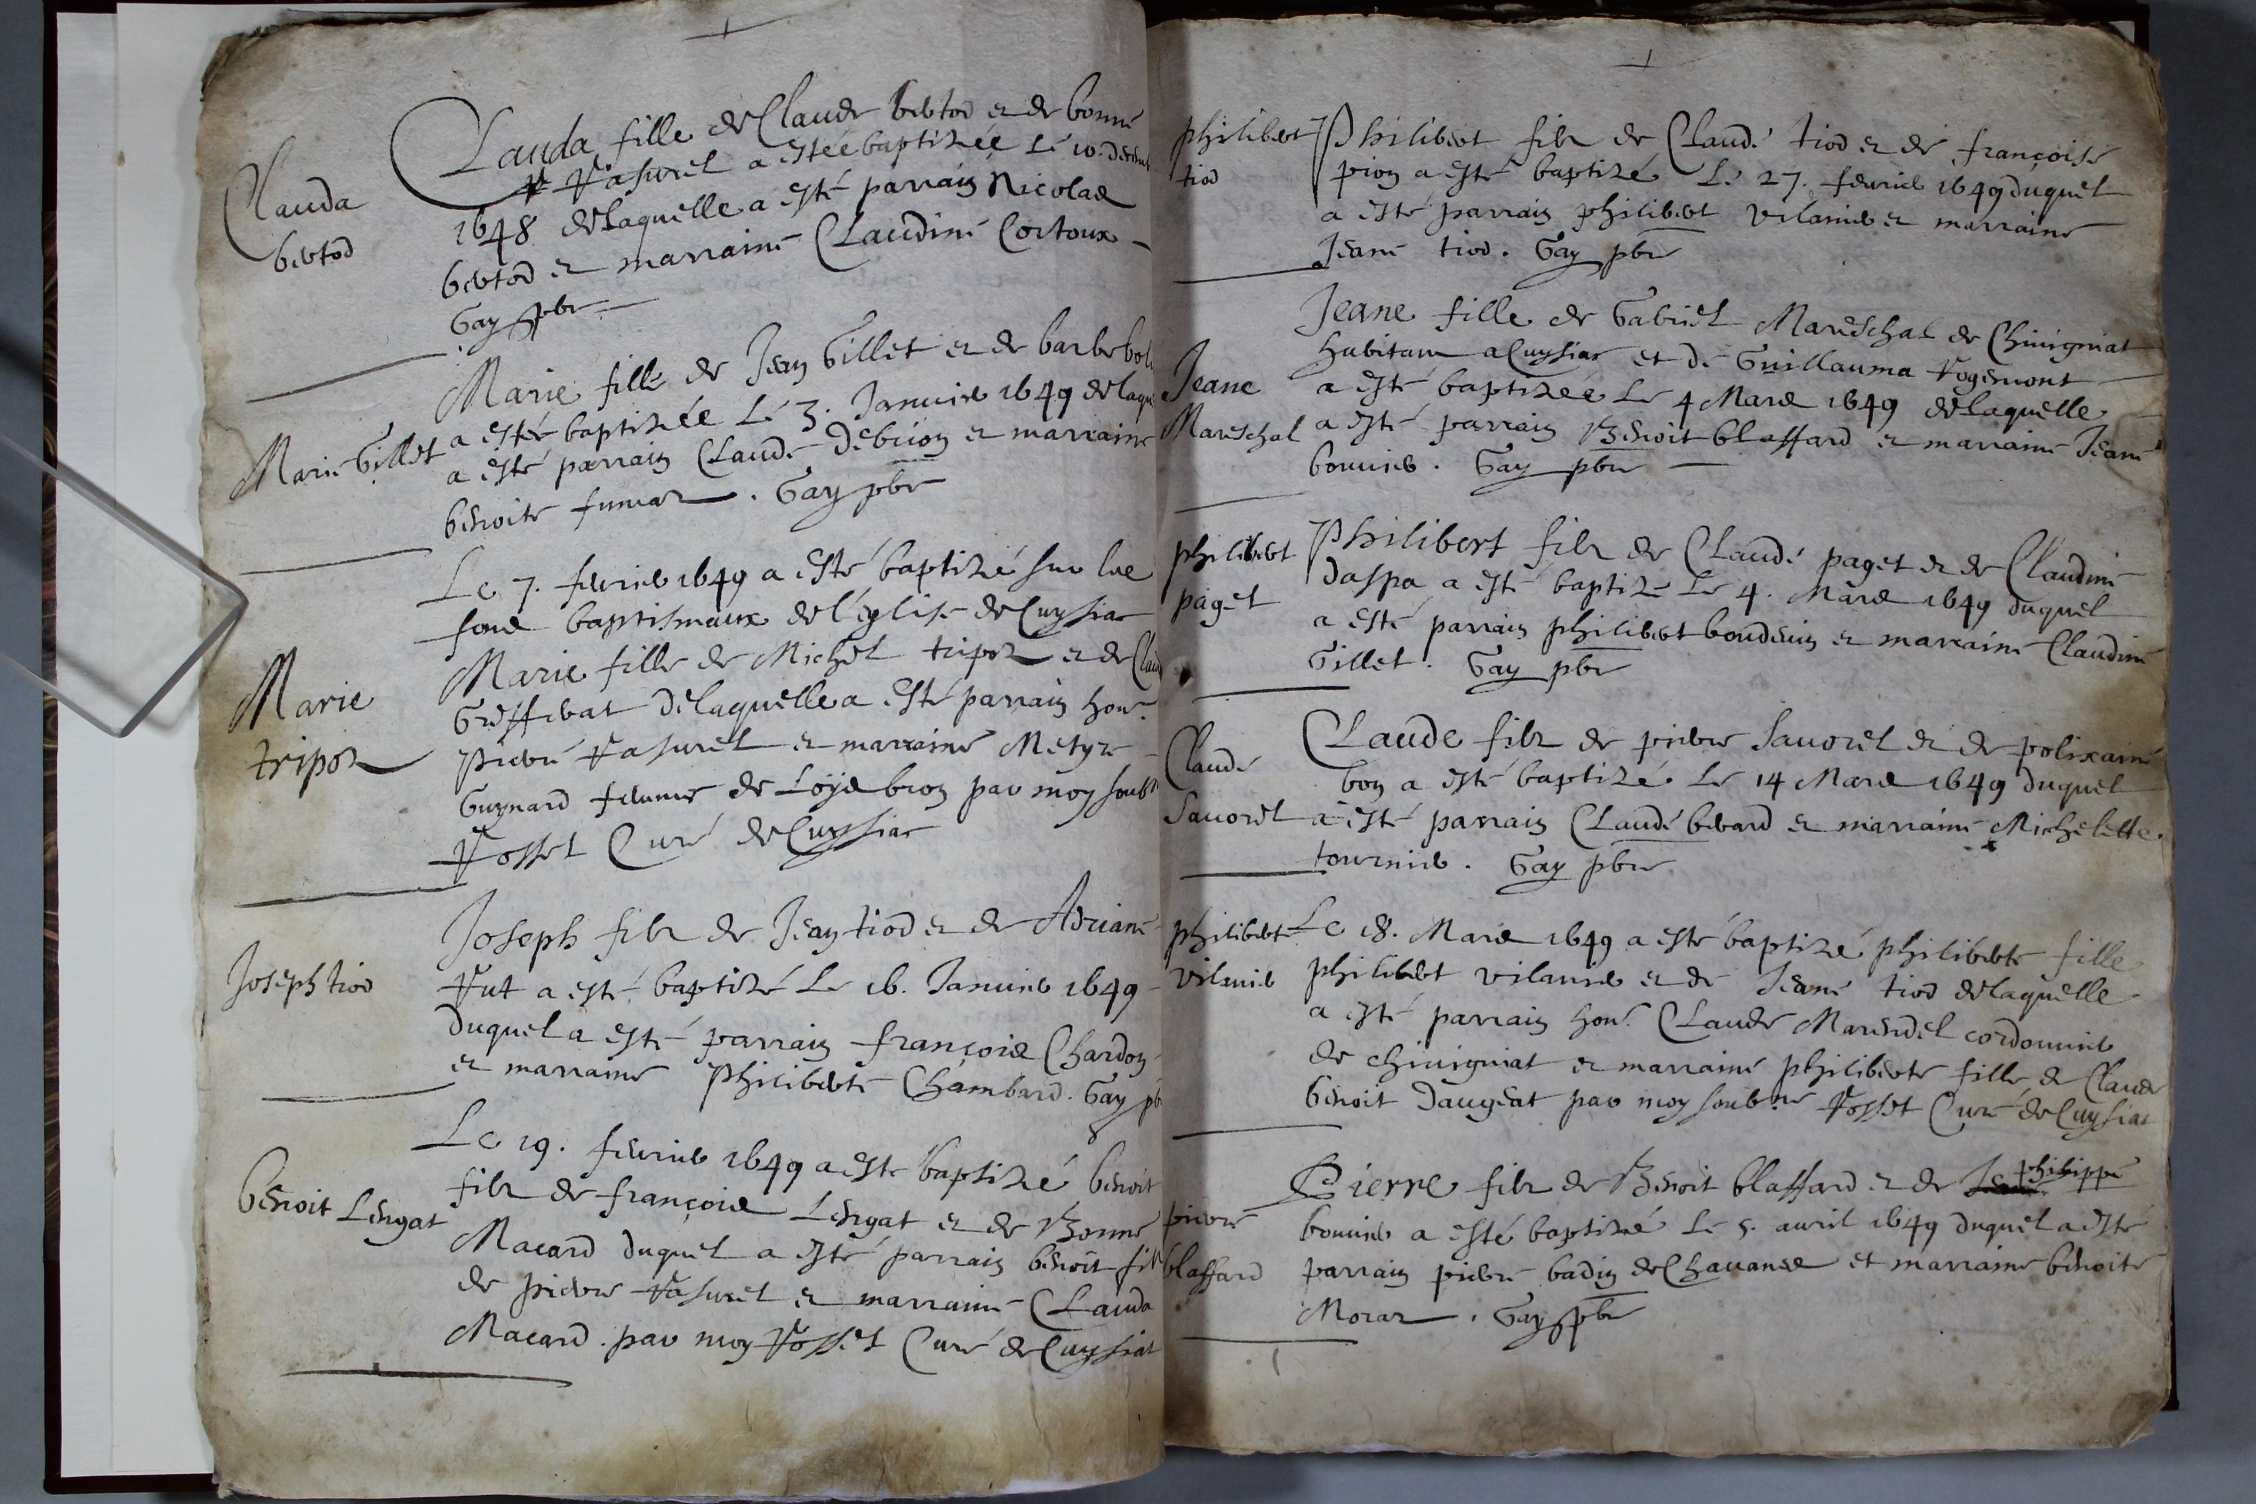 Clauda
bertod
Clauda fille de Claude bertod et de bonne
Vasurel a estéé baptizée Le 10. decemb
1648 delaquelle a esté parrain Nicolas
bertod et marraine Claudine Cortoux
Gay pbr
Marie Gillet
Marie fille de Jean Gillet et de barbe
a estée baptizée Le 3. Januier 1649 delaque
a esté parrain Claude debrion et marraine
benoite . Gay pbr
Marie
tripoz
Le 7. feurier 1649 a esté baptizé sur les
fons baptismaux de l'église de Cuysiat
Marie fille de Michel tripoz et de Claud
Greffierat delaquelle a esté parrain hon.
Pierre Vasurel et marraine
Guynard femme de par moy soubz
Vosset Curé de Cuysiat
Joseph tiod
Joseph filz de Jean tiod et de Adriane
Vut a esté baptizé Le 16. Januier 1649
duquel a esté parrain françois Chardon
et marraine Philiberte Chambard. Gay pb
benoit Lengat
Le 19. feurier 1649 a este baptizé benoit
filz de françois Lengat et de Bonne
Macard duquel a esté parrain benoit filz
de pierre Vasurel et marraine Clauda
Macard. par moy Vosset Curé de Cuysiat
philibert
tiod
Philibert filz de Claude tiod et de françoise
pion a esté baptizé Le 27. feurier 1649 duquel
a esté parrain philibert vilanier et marraine
Jeane tiod. Gay pbr
Jeane
Mareschal
Jeane fille de Gabriel Mareschal de Chiuigniat
habitant a Cuysiat et de Guillauma Vogemont
a esté baptizée Le 4 Mars 1649 delaquelle
a esté parrain Benoit blaffard et marraine Jeane
bouuier. Gay pbr
philibert
paget
Philibert filz de Claude paget et de Claudine
daspa a esté baptizé Le 4. Mars 1649 duquel
a esté parrain philibert bondeuin et marraine Claudine
Gillet. Gay pbr
Claude
Sauorel
Claude filz de pierre Sauorel et de polixaine
bon a esté baptizé Le 14 Mars 1649 duquel
a esté parrain Claude berard et marraine Michelette
tournier. Gay pbr
philiberte
vilanier
Le 18. Mars 1649 a esté baptizé philiberte fille
philibert vilanier et de Jeane tiod delaquelle
a esté parrain hon. Claude Marendel cordonnier
de chiuigniat et marraine philiberte fille de Claude
benoit daugeat par moy soubzne Vosset Curé de Cuysiat
pierre
blaffard
Pierre filz de Benoit blaffard et de philippe
bouuier a esté baptizé Le 5. auril 1649 duquel a esté
parrain pierre badin de Chauanes et marraine benoite
Moraz. Gay pbr